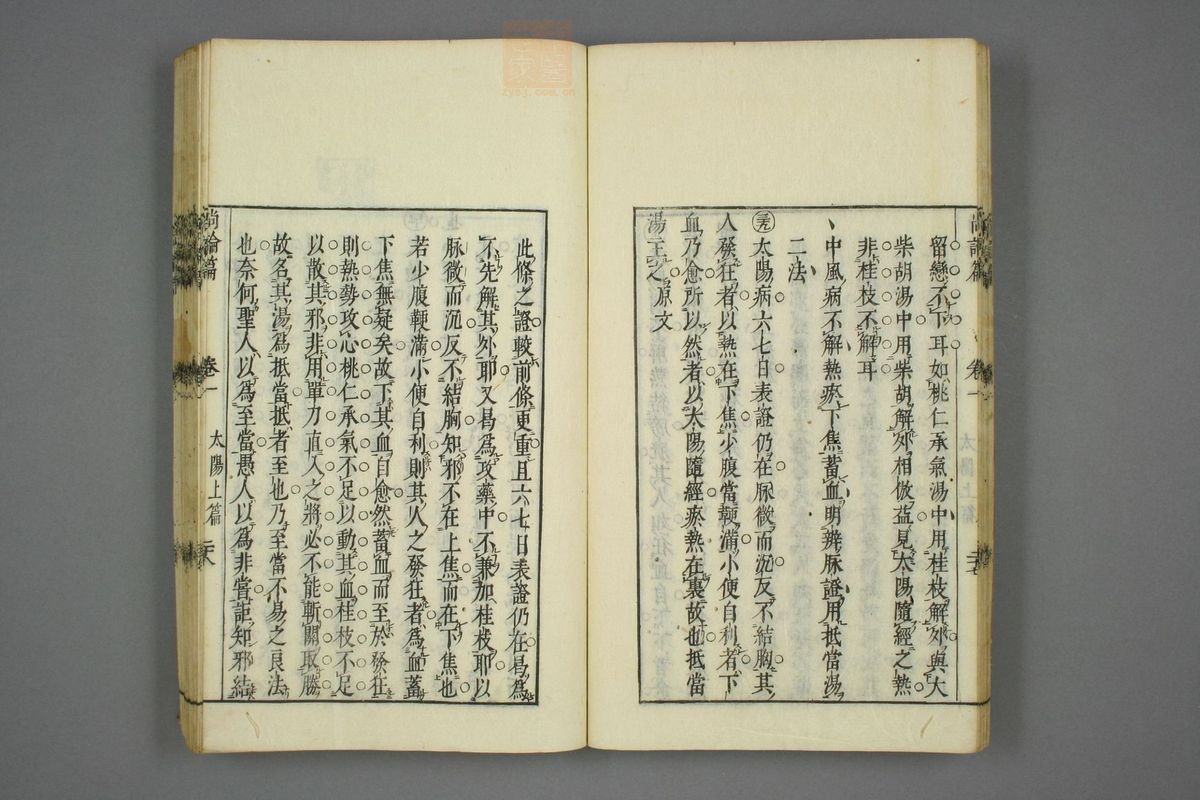 尚論篇
卷一
太陽上篇
留戀不下耳如桃仁承氣湯中用桂枝解外與大
柴胡湯中用柴胡解外相倣益見太陽隨經之熱
非桂枝不解耳
中風病不解熱瘀下焦蓄血明辨脉證用抵當湯
二法
太陽病六七日表證仍在脉微而沉反不結胸其
人發狂者以熱在下焦少腹當鞕滿小便自利者下
血乃愈所以然者以太陽隨經瘀熱在裏故也抵當
湯主之原文
此條之證較前條更重且六七日表證仍在曷爲
不先解其外耶又曷爲攻藥中不兼加桂枝耶以
脉微而沉反不結胸知邪不在上焦而在下焦也
若少腹鞕滿小便自利則其人之發狂者爲血蓄
下焦無疑矣故下其血自愈然蓄血而至於發狂
則熱勢攻心桃仁承氣不足以動其血桂枝不足
以散其邪非用單刀直入之將必不能斬關取勝
故名其湯爲抵當抵者至也乃至當不易之良法
也奈何聖人以爲至當愚人以爲非嘗詎知邪結
尚論篇
卷一
太陽上篇
二十八
zysj.com.cn